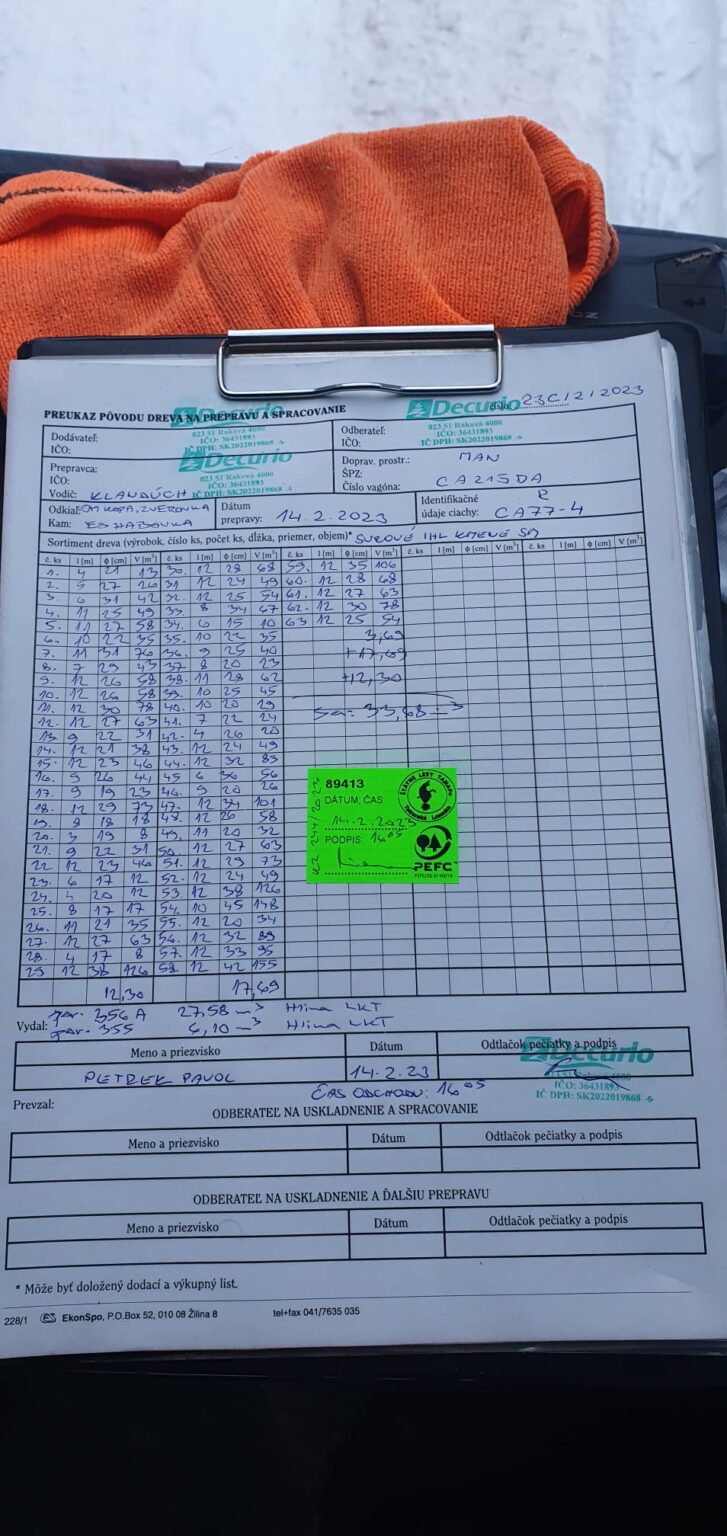 PREUKAZ PÔVODU DREVA NA PREPRAVU A SPRACOVANIE
Decurio
Decurio
číslo 23C/2/2023
Dodávateľ:
IČO:
023 51 Raková 4000
IČO: 36431893
IČ DPH: SK2022019868 -6-
Odberateľ:
IČO:
023 51 Raková 4000
IČO: 36431893
IČ DPH: SK2022019868 -6-
Prepravca:
IČO:
Vodič: KLANDÚCH
Decurio
023 51 Raková 4000
IČO: 36431893
IČ DPH: SK2022019868 -6-
Doprav. prostr.: MAN
ŠPZ:
Číslo vagóna: CA215DA
Odkiaľ: OM KOPA, ZVEROVKA
Kam: ES HABOVKA
Dátum
prepravy: 14.2.2023
Identifikačné R
údaje ciachy: CA77-4
Sortiment dreva (výrobok, číslo ks, počet ks, dĺžka, priemer, objem)* SUROVÉ IHL KMENE SM
č. ks l [m] ϕ [cm] V [m³] č. ks l [m] ϕ [cm] V [m³] č. ks l [m] ϕ [cm] V [m³] č. ks l [m] ϕ [cm] V [m³] č. ks l [m] ϕ [cm] V [m³]
1. 4 21 13 30. 12 28 68 59. 12 35 106
2. 5 27 26 31 12 24 49 60. 12 28 68
3. 6 31 42 32. 12 25 54 61. 12 27 63
4. 11 25 49 33. 8 34 67 62. 12 30 78
5. 11 27 58 34. 6 15 10 63 12 25 54
6. 10 22 35 35. 10 22 35 3,69
7. 11 31 76 36. 9 25 40 +17,69
8. 7 29 43 37 8 20 23
9. 12 26 58 38. 11 28 62 +12,30
10. 12 26 58 39. 10 25 45
11. 12 30 78 40. 10 20 29
12. 12 27 63 41. 7 22 24 Sa= 33,68 m³
13 9 22 31 42. 4 26 20
14. 12 21 38 43. 12 24 49
15. 12 23 46 44. 12 32 83
16. 9 26 44 45 6 36 56
17. 9 19 23 46. 9 20 26
18. 12 29 73 47. 12 34 101
19. 8 18 18 48. 12 26 58
20. 3 19 8 49. 11 20 32
21. 9 22 31 50. 12 27 63
22 12 23 46 51. 12 29 73
23. 6 17 12 52. 12 24 49
24. 4 20 12 53 12 38 126
25. 8 17 17 54. 10 45 148
26. 11 21 35 55. 12 20 34
27. 12 27 63 56. 12 32 89
28. 4 17 8 57. 12 33 95
29 12 38 126 58. 12 42 155
12,30 17,69
89413
DÁTUM, ČAS:
14.2.2023
PODPIS: 16 05
ŠTÁTNE LESY TANAPU
PEFC
Vydal:
356 A 27,58 m³ Hlina LKT
355 6,10 m³ Hlina LKT
Meno a priezvisko Dátum Odtlačok pečiatky a podpis
PETREK PAVOL 14.2.23
Decurio
IČO: 36431893
IČ DPH: SK2022019868 -6-
ČAS ODCHODU: 16 05
Prevzal:
ODBERATEĽ NA USKLADNENIE A SPRACOVANIE
Meno a priezvisko Dátum Odtlačok pečiatky a podpis
ODBERATEĽ NA USKLADNENIE A ĎALŠIU PREPRAVU
Meno a priezvisko Dátum Odtlačok pečiatky a podpis
* Môže byť doložený dodací a výkupný list.
228/1 EkonSpo, P.O.Box 52, 010 08 Žilina 8 tel+fax 041/7635 035